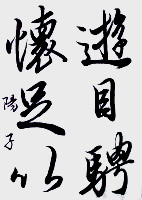 遊目騁
懷足以
陽子